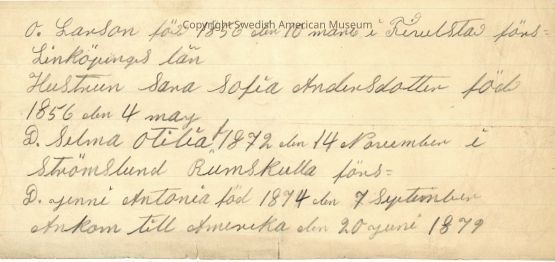 Copyright Swedish American Museum
O. Larson föd 1850 den 10 mars i förs=
Linköpings län
Hustrun Sara Sofia Andersdotter föd
1856 den 4 may
D. Selma Otilia f 1872 den 14 November i
Strömslund Rumskulla förs=
D. Jenni Antonia föd 1874 den 7 September
Ankom till Amerika den 20 juni 1879